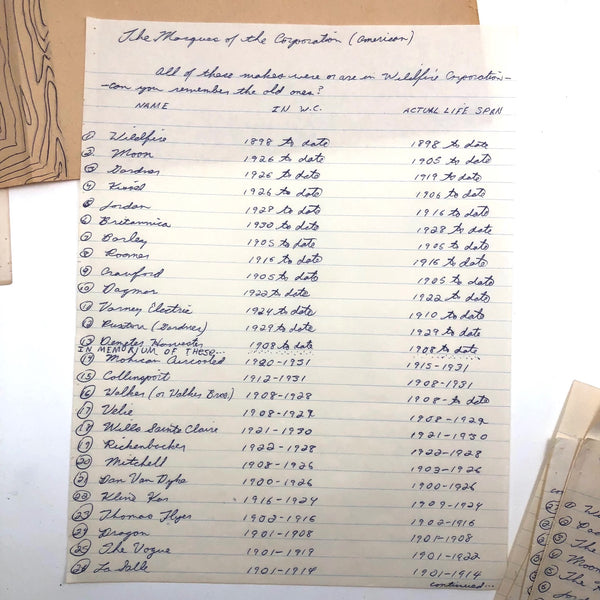 The Marques of the Corporation (American)
All of these makes were or are in Wildfire Corporation-
-can you remember the old ones?
NAME IN W.C. ACTUAL LIFE SPAN
① Wildfire 1898 to date 1898 to date
② Moon 1926 to date 1905 to date
③ Gardner 1926 to date 1919 to date
④ Kissel 1926 to date 1906 to date
⑤ Jordan 1928 to date 1916 to date
⑥ Britannica 1930 to date 1928 to date
⑦ Barley 1905 to date 1905 to date
⑧ Roamer 1916 to date 1916 to date
⑨ Crawford 1905 to date 1905 to date
⑩ Dagmar 1922 to date 1922 to date
⑪ Varney Electric 1924 to date 1910 to date
⑫ (Gardner) 1929 to date 1929 to date
⑬ Demeter Harvester 1908 to date 1908 to date
IN MEMORIUM OF THESE...
⑭ Mohican Aircooled 1920-1931 1915-1931
⑮ Collinsport 1912-1931 1908-1931
⑯ Walker (or Walker Bros.) 1908-1928 1908-to date
⑰ Velie 1908-1929 1908-1929
⑱ Wills Sainte Claire 1921-1930 1921-1930
⑲ Rickenbacker 1922-1928 1922-1928
⑳ Mitchell 1908-1926 1903-1926
㉑ Van Dyke 1900-1926 1900-1926
㉒ Kline Kar 1915-1924 1909-1924
㉓ Thomas Flyer 1902-1916 1902-1916
㉔ Dragon 1901-1908 1901-1908
㉕ The Vogue 1901-1919 1901-1922
㉖ La Salle 1901-1914 1901-1914
continued...